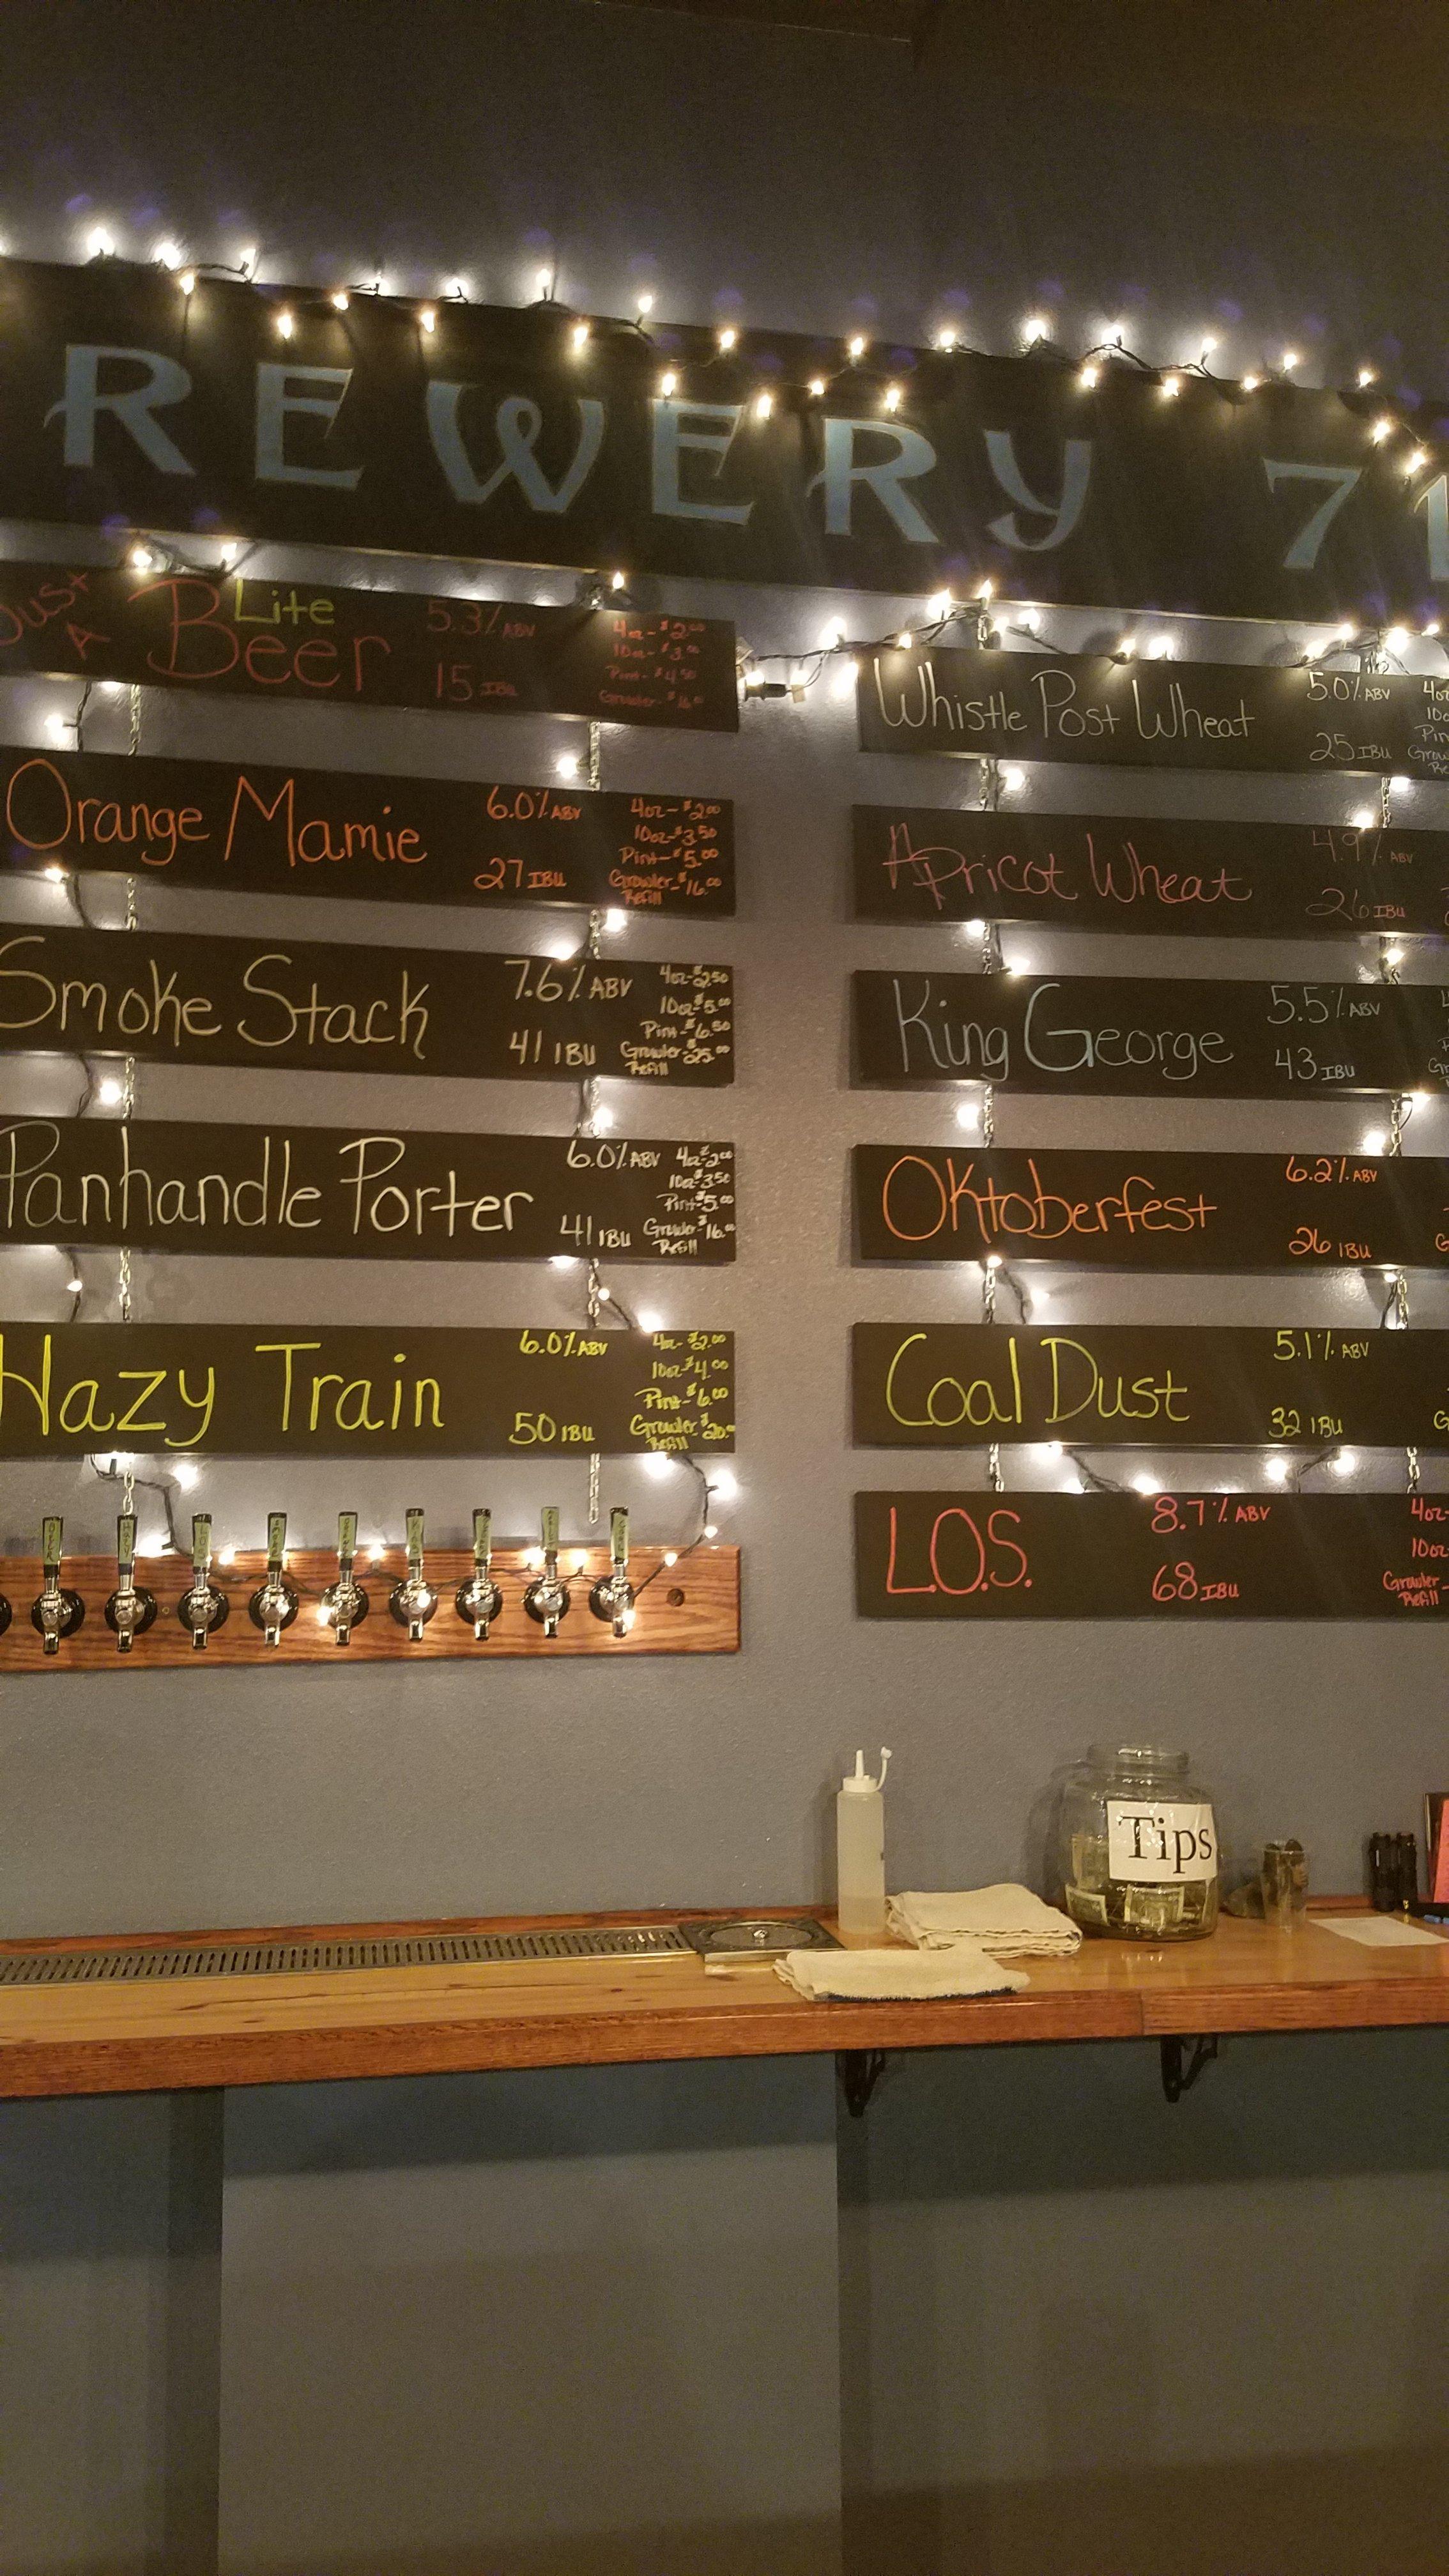 REWERY 71
Just A Lite Beer 5.3% ABV 15 IBU
4oz- $2.00
10oz- $3.00
Pint- $4.50
Growler- $16.00
Orange Mamie 6.0% ABV 27 IBU
4oz- $2.00
10oz- $3.50
Pint- $5.00
Growler- $16.00
Refill
Smoke Stack 7.6% ABV 41 IBU
4oz- $2.50
10oz- $5.00
Pint- $6.50
Growler- $25.00
Refill
Panhandle Porter 6.0% ABV 41 IBU
4oz- $2.00
10oz- $3.50
Pint- $5.00
Growler- $16.00
Refill
Hazy Train 6.0% ABV 50 IBU
4oz- $2.00
10oz- $4.00
Pint- $6.00
Growler $20.00
Refill
Whistle Post Wheat 5.0% ABV 25 IBU
Apricot Wheat 4.9% ABV 26 IBU
King George 5.5% ABV 43 IBU
Oktoberfest 6.2% ABV 26 IBU
Coal Dust 5.1% ABV 32 IBU
L.O.S. 8.7% ABV 68 IBU
4oz-
10oz
Growler-
Refill
Tips